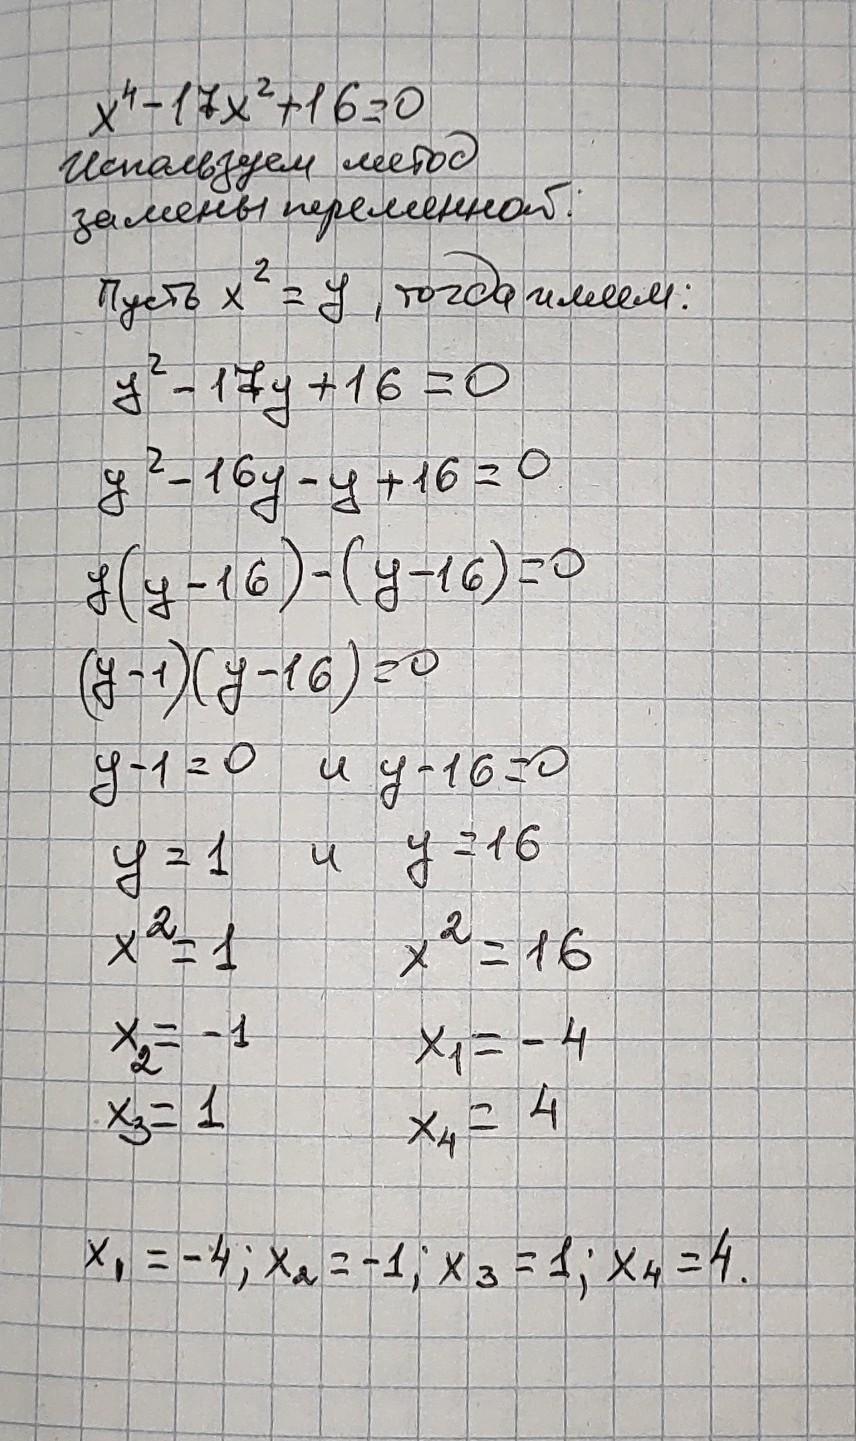 x⁴-17x²+16=0
Используем метод
замены переменной:
Пусть x² = y, тогда имеем:
y²-17y+16=0
y²-16y-y+16=0
y(y-16)-(y-16)=0
(y-1)(y-16)=0
y-1=0 и y-16=0
y=1 и y=16
x²=1 x²=16
x₂=-1 x₁=-4
x₃=1 x₄=4
x₁=-4; x₂=-1; x₃=1; x₄=4.